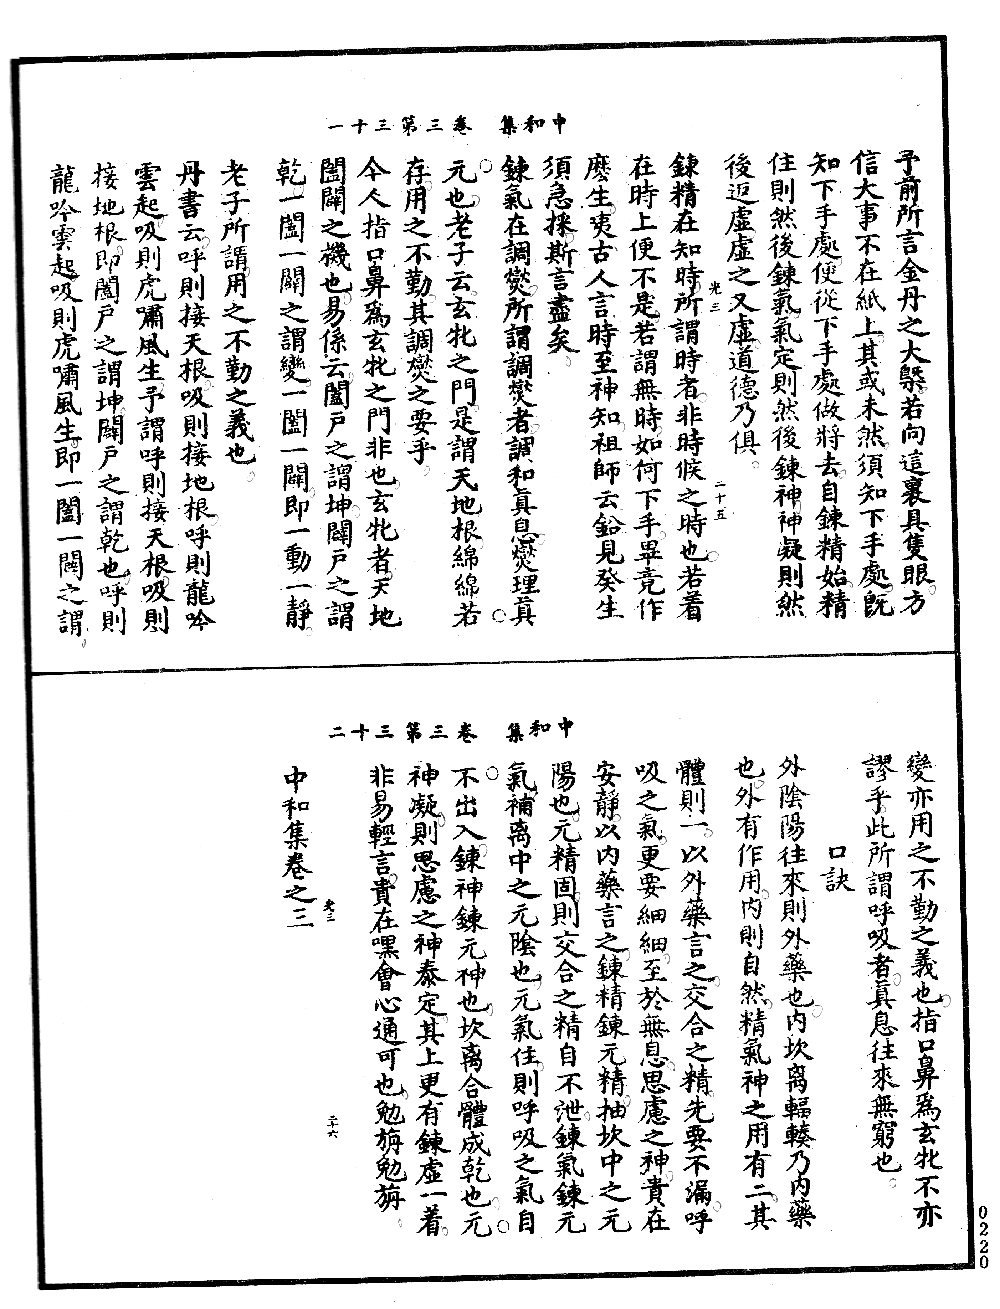 中和集　卷三第三十一
予前所言金丹之大槩若向這裏具隻眼方
信大事不在紙上其或未然須知下手處旣
知下手處便從下手處做將去自鍊精始精
住則然後鍊氣氣定則然後鍊神神凝則然
後返虛虛之又虛道德乃俱
光三
二十五
鍊精在知時所謂時者非時候之時也若着
在時上便不是若謂無時如何下手畢竟作
麽生夷古人言時至神知祖師云鉛見癸生
須急採斯言盡矣
鍊氣在調燮所謂調燮者調和眞息燮理眞
元也老子云玄牝之門是謂天地根綿綿若
存用之不勤其調燮之要乎
今人指口鼻爲玄牝之門非也玄牝者天地
闔闢之機也易係云闔戸之謂坤闢戸之謂
乾一闔一闢之謂變一闔一闢即一動一靜
老子所謂用之不勤之義也
丹書云呼則接天根吸則接地根呼則龍吟
雲起吸則虎嘯風生予謂呼則接天根吸則
接地根即闔戸之謂坤闢戸之謂乾也呼則
龍吟雲起吸則虎嘯風生即一闔一闢之謂
中和集　卷三第三十二
變亦用之不勤之義也指口鼻爲玄牝不亦
謬乎此所謂呼吸者眞息往來無窮也
口訣
外陰陽往來則外藥也内坎离輻輳乃内藥
也外有作用内則自然精氣神之用有二其
體則一以外藥言之交合之精先要不漏呼
吸之氣更要細細至於無息思慮之神貴在
安靜以内藥言之鍊精鍊元精抽坎中之元
陽也元精固則交合之精自不泄鍊氣鍊元
氣補离中之元陰也元氣住則呼吸之氣自
不出入鍊神鍊元神也坎离合體成乾也元
神凝則思慮之神泰定其上更有鍊虛一着
非易輕言貴在嘿會心通可也勉旃勉旃
光三
二十六
中和集卷之三
0220